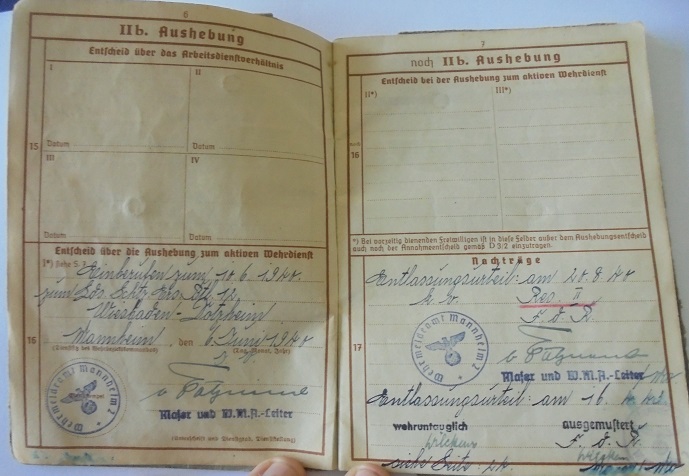 6
IIb. Aushebung
Entscheid über das Arbeitsdienstverhältnis
I
II
15
Datum
Datum
III
IV
Datum
Datum
Entscheid über die Aushebung zum aktiven Wehrdienst
I*) siehe S. 7
Einberufen zum 10.6.1940
zum
Wiesbaden-Dotzheim
16
Mannheim, den 6. Juni 1940
Wehrmeldeamt Mannheim 2
Major und W.M.A.-Leiter
7
noch IIb. Aushebung
Entscheid bei der Aushebung zum aktiven Wehrdienst
II*)
III*)
noch
16
*) Bei vorzeitig dienenden Freiwilligen ist in diese Felder außer dem Aushebungsentscheid
auch noch der Annahmeentscheid gemäß D 3/2 einzutragen.
Nachträge
Entlassungsurteil: am 20.8.40
Res. II
F. d. R.
17
Wehrmeldeamt Mannheim 2
Major und W.M.A.-Leiter
Entlassungsurteil: am 16.
wehruntauglich
ausgemustert
F. d. R.
siehe Seite